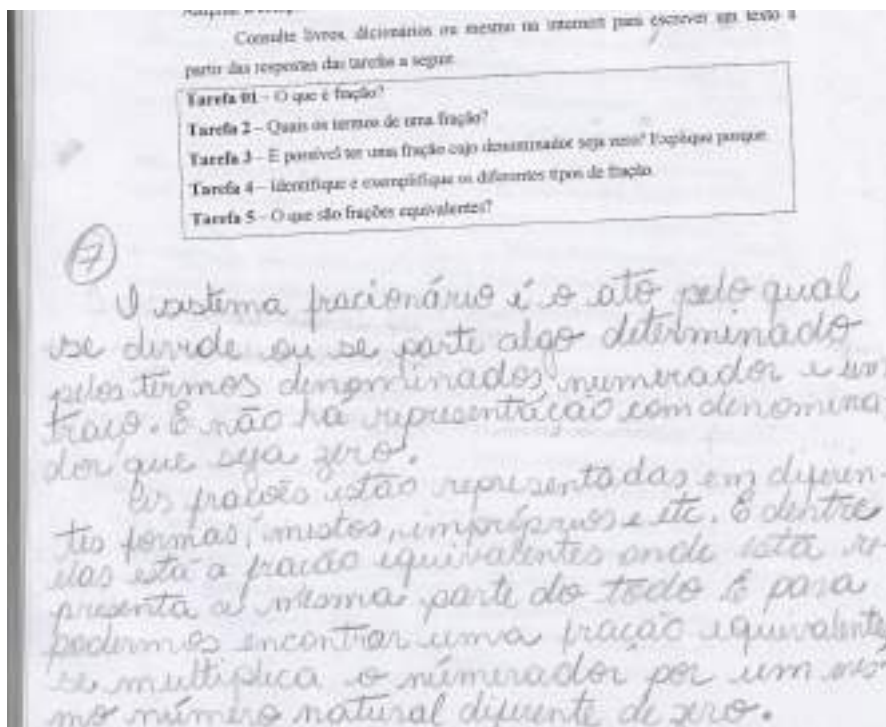 Consulte livros, dicionários ou mesmo na internet para escrever um texto a
partir das respostas das tarefas a seguir.
Tarefa 01 – O que é fração?
Tarefa 2 – Quais os termos de uma fração?
Tarefa 3 – É possível ter uma fração cujo denominador seja zero? Explique porque.
Tarefa 4 – Identifique e exemplifique os diferentes tipos de fração.
Tarefa 5 – O que são frações equivalentes?
7
O sistema fracionário é o ato pelo qual
se divide ou se parte algo determinado
pelos termos denominados, numerador e um
traço. E não há representação com denomina
dor que seja zero.
As frações estão representadas em diferen-
tes formas, mistos, impróprios e etc. E dentre
elas está a fração equivalentes onde esta re-
presenta a mesma parte do todo E para
podermos encontrar uma fração equivalente,
se multiplica o númerador por um mes-
mo número natural diferente de zero.